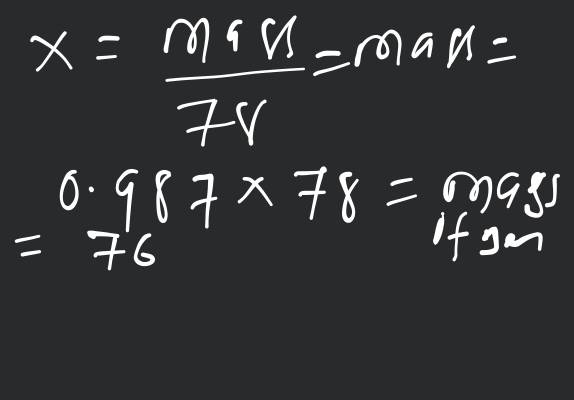 x = mass / 78 = mass =
0.987 x 78 = mass
= 76 if gen